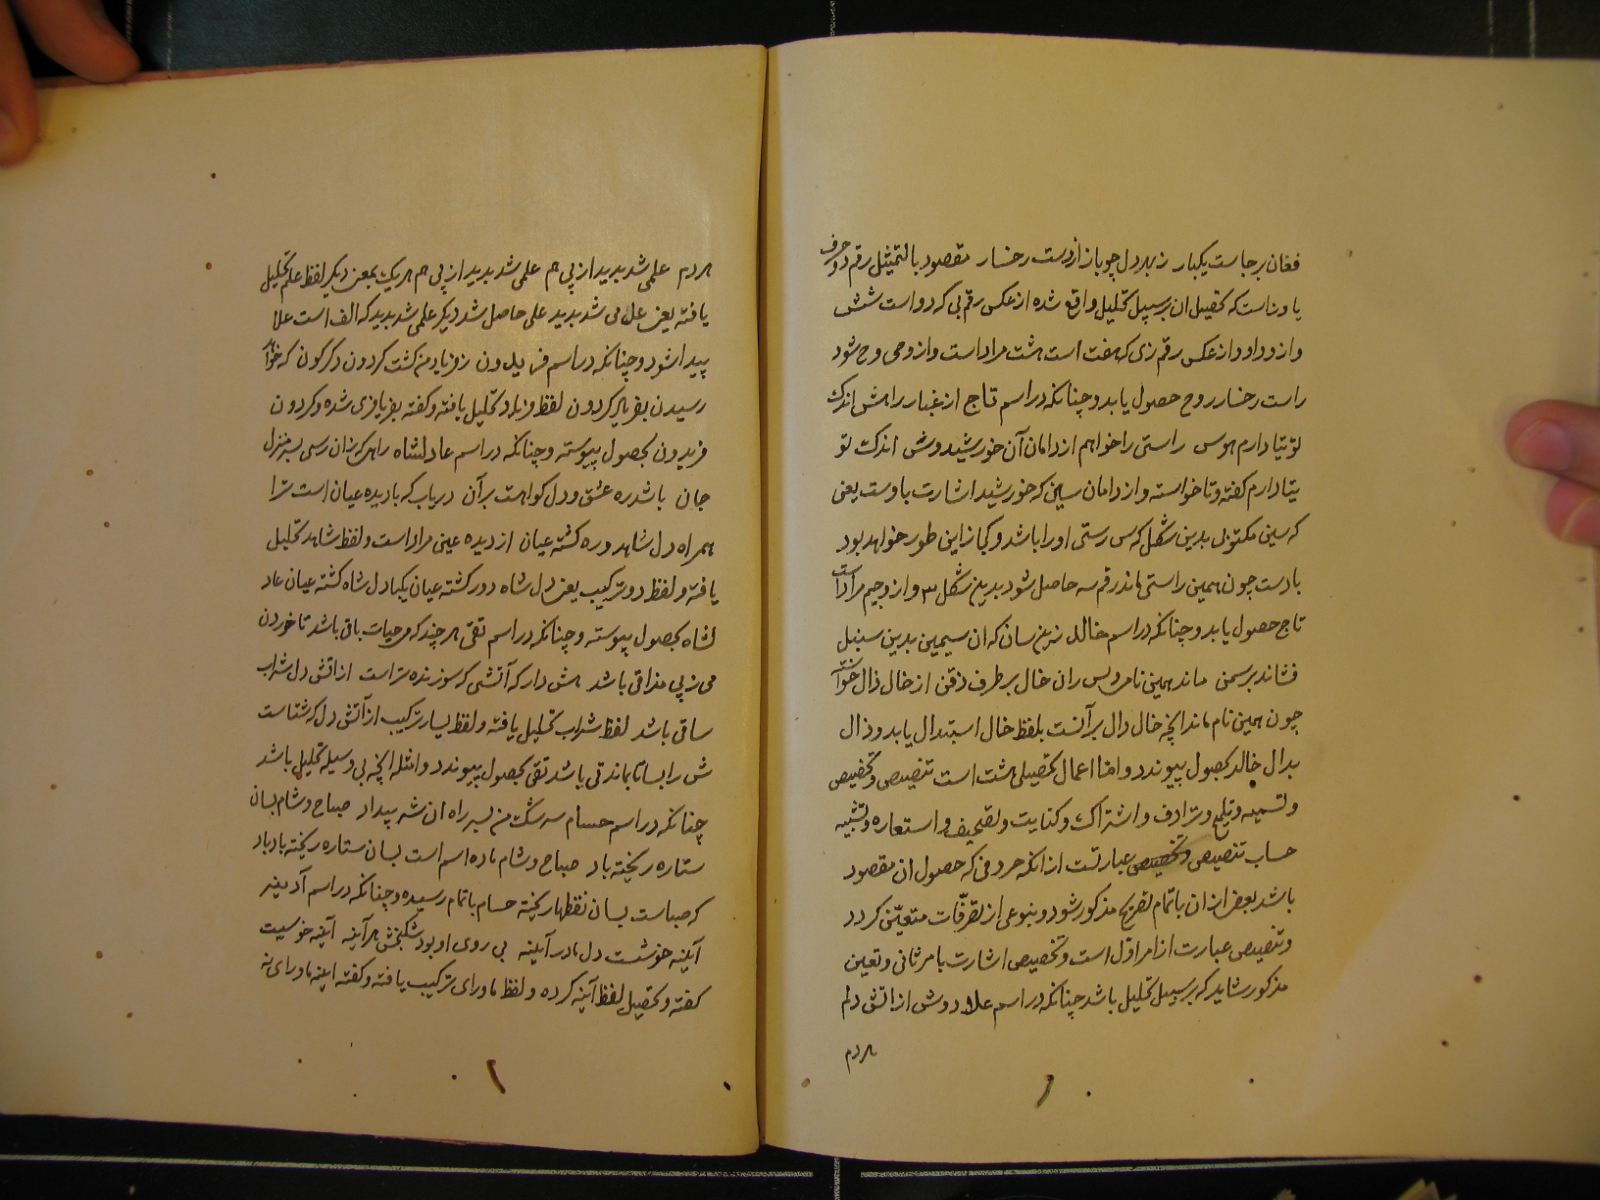 فغان برجاست یکبار زهر دل چو باز از دست رخسار مقصود بالتمثیل رقم دو حرف
یا دنیاست که تحصیل ان بر سبیل تحلیل واقع شده از عکس رقم بی که دو است شش
واز و داو و از عکس رقم زی که هفت است هشت مراد است واز وحی وح شود
راست رخسار روح حصول یابد و چنانکه در اسم تاج از غبار راهش اندک
توتیا دارم هوس راستی را خواهم از دامان آن خورشیدوش اندک تو
تیتا دارم گفته و تا خواسته و از دامان سین که خورشید اشارت باوست یعنی
که سین مکتوبی بدین شکل که س رستی او را باشد و کنار این طور خواهد بود
بادست چون همین راستی ماند رقم سه حاصل شود بدین شکل ۳ و از و جیم مراد است
تاج حصول یابد و چنانکه در اسم خالد زین سان که ان سیمین بدین سنبل
فشاند بر سمن ماند همین نام و پس ران خال بر طرف ذقن از خال ذال خواسته
چون همین نام ماند انچه خال دال برآنست بلفظ خال استبدال یابد و ذال
بدال خالد بحصول پیوندد و اما اعمال تحصیلی هشت است تنصیص و تخصیص
و تسمیه و تلمیح و ترادف و اشتراک و کنایت و تصحیف و استعاره و تشبیه
حساب تنصیص و تخصیص عبارتست از انکه حروفی که حصول ان مقصود
باشد بعض از ان یا تمام تصریح مذکور شود و بنوعی از تصرفات متعین کردد
و تنصیص عبارت از امر اول است و تخصیص اشارت با مر ثانی و تعین
مذکور شاید که بر سبیل تحلیل باشد چنانکه در اسم علا دوش از اتش دلم
هر دم
هر دم علمی شد پدید از پی هم علمی شد پدید از پی هم هر یک بمعنی دیگر لفظ علم تحلیل
یافته یعنی علل می شد پدید علی حاصل شد دیگر علمی شد پدید که الف است علا
پیدا شود و چنانکه در اسم فریدون روز یادم کشت کردون دکرکون که خواهد
رسیدن بفریاد کردون لفظ فریاد تحلیل یافته و گفته بفریا فری شده و کردون
فریدون بحصول پیوسته و چنانکه در اسم عادلشاه راهی کزان رسی بسر منزل
جان باشد ره عشق و دل کواهست برآن دریاب که با دیده عیان است ترا
همراه دل شاهد و ره کشته عیان از دیده عینی مراد است و لفظ شاهد تحلیل
یافته و لفظ دو ترکیب یعنی دل شاه دور کشته عیان یکبار دل شاه کشته عیان عاد
لشاه بحصول پیوسته و چنانکه در اسم تقی هر چند که م حیات باقی باشد تا خوردن
می ز پی مذاقی باشد هش دار که آتشی که سوزنده تراست از اتش دل شراب
ساقی باشد لفظ شراب تحلیل یافته و لفظ بسا ترکیب از آتش دل که شتاست
ش را بسا تا بماند تی باشد تقی بحصول پیوندد و امثله انچه بی وسیله تحلیل باشد
چنانکه در اسم حسام سه سنگ من بسر راه ان شه بیداد صباح و شام بسان
ستاره ریخته باد صباح و شام ماده اسم است بسان ستاره ریخته باد باد
که صباست بسان نقطها ریخته حسام باتمام رسیده و چنانکه در اسم آدینه
آینه خوشست دل مادر آیینه بی روی او بود شکنجش هر آینه آینه خوسیت
گفته و تحصیل لفظ آینه کرده و لفظ ماورای ترکیب یافته و گفته اینه ماورای نه